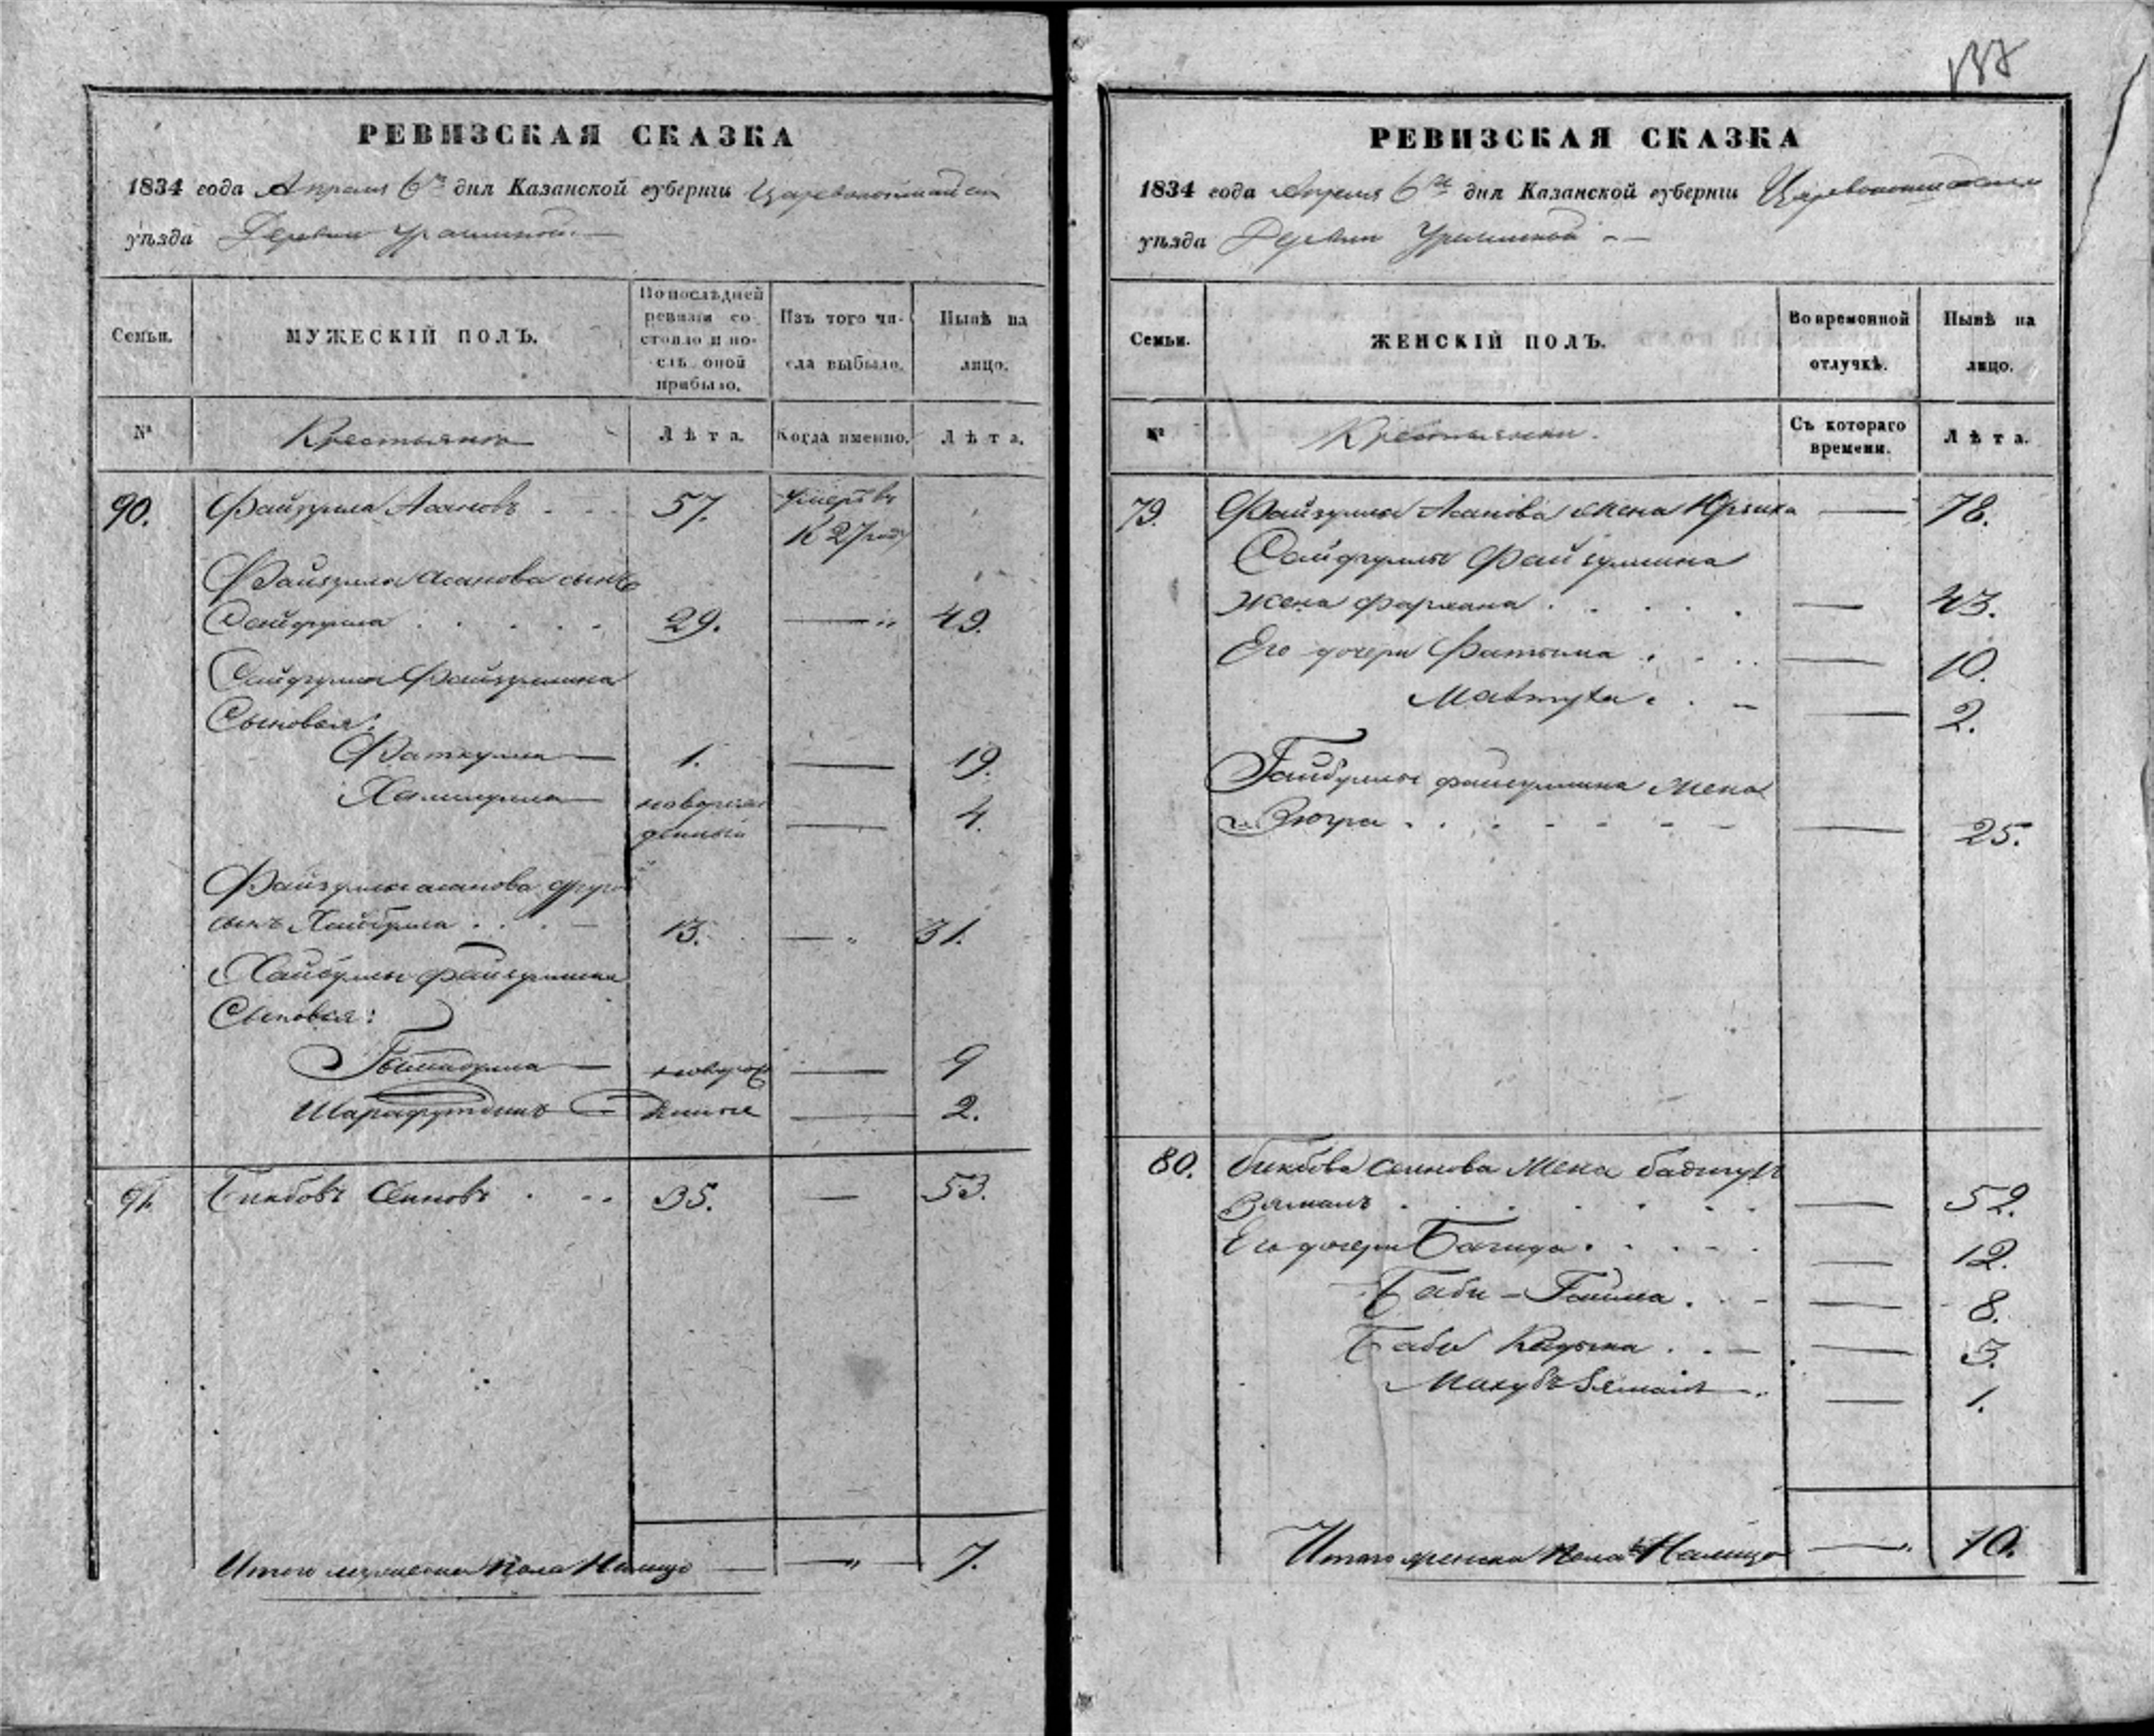 РЕВИЗСКАЯ СКАЗКА
1834 года Апреля 6го дня Казанской губерніи Царевококшайск
уѣзда Деревни
Семьи.
МУЖЕСКІЙ ПОЛЪ.
По послѣдней
ревизіи со-
стояло и по-
слѣ оной
прибыло.
Изъ того чи-
сла выбыло.
Нынѣ на
лицо.
№
Крестьянъ
Лѣта.
Когда именно.
Лѣта.
90. Файзулла Асановъ 57. умеръ въ
1827 году
Файзуллы Асанова сынъ
Сайфулла 29. — 49.
Сайфуллы Файзуллина
Сыновья:
Фаткулла — 1. — 19.
Халиулла — новорож
денный — 4.
Файзуллы Асанова другой
сынъ Хайбулла 13. — 31.
Хайбуллы Файзуллина
Сыновья:
новорож — 9
Шарафутдинъ денные — 2.
91. Бикбовъ Сеиновъ 35. — 53.
Итого мужеска пола Налицо — 7.
137
РЕВИЗСКАЯ СКАЗКА
1834 года Апреля 6го дня Казанской губерніи Царевококшайской
уѣзда Деревни
Семьи.
ЖЕНСКІЙ ПОЛЪ.
Во временной
отлучкѣ.
Нынѣ на
лицо.
№
Крестьянки.
Съ котораго
времени.
Лѣта.
79. Файзуллы Асанова жена — 78.
Сайфуллы Файзуллина
жена — 43.
Его дочери Фатыма — 10.
— 2.
Файзуллина жена
Зюгра — 25.
80. Бикбова Сеинова жена Бадигулъ
Зяманъ — 52.
Его дочери — 12.
Биби — 8.
Биби — 3.
— 1.
Итого женска пола Налицо — 10.